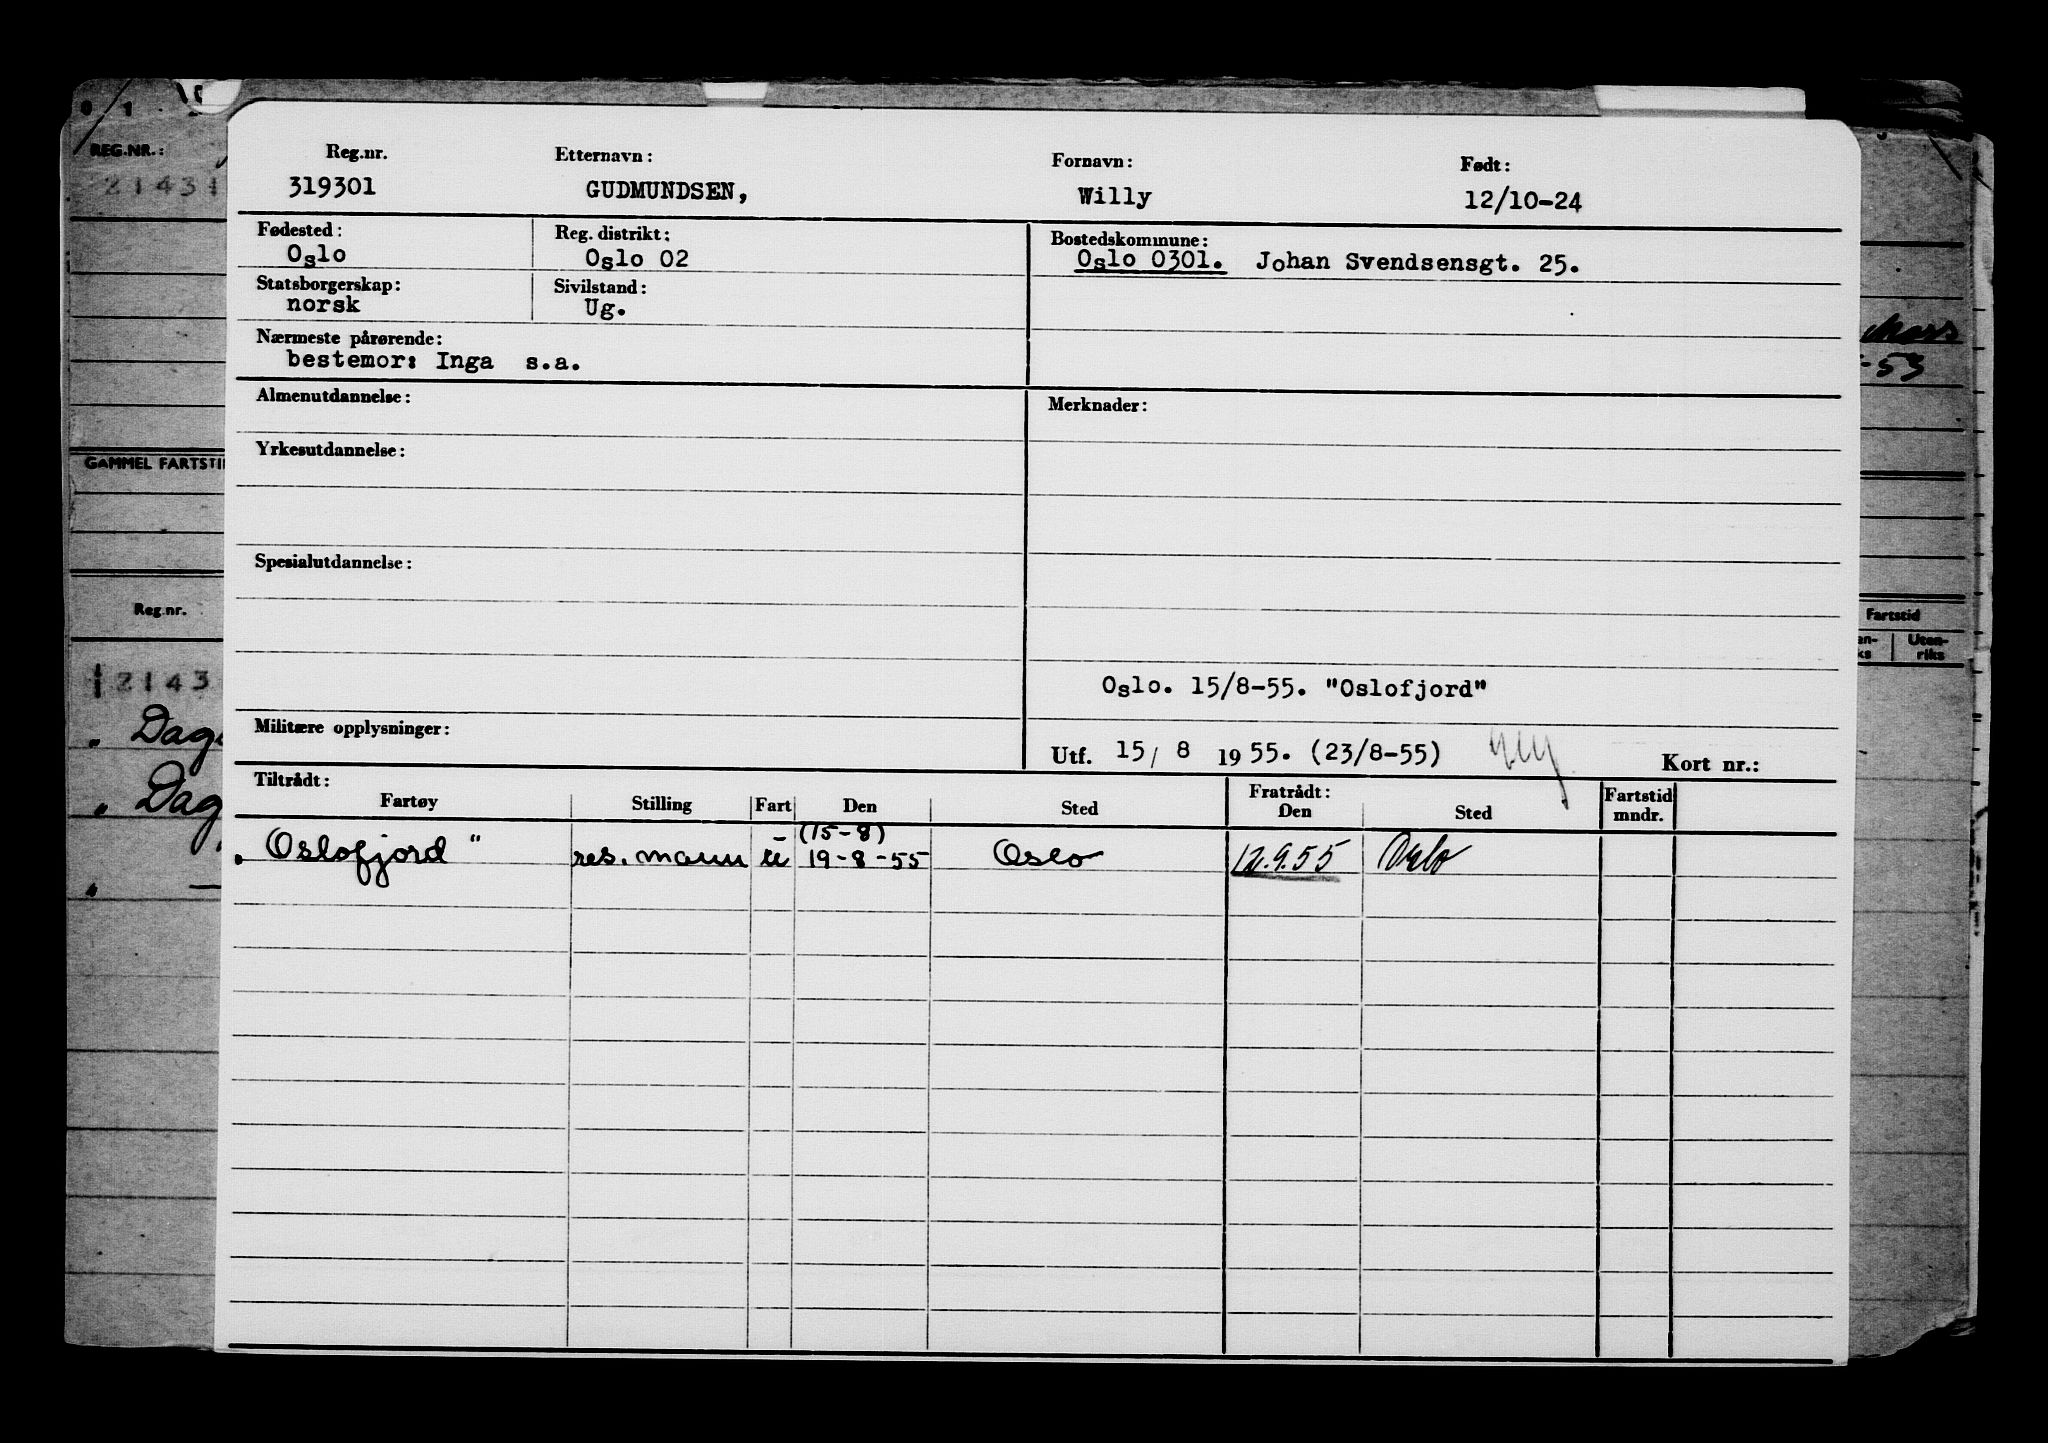 Reg.nr. Etternavn: Fornavn: Født:
319301 GUDMUNDSEN, Willy 12/10-24
Fødested: Reg. distrikt: Bostedskommune:
Oslo Oslo 02 Oslo 0301. Johan Svendsensgt. 25.
Statsborgerskap: Sivilstand:
norsk Ug.
Nærmeste pårørende:
bestemor: Inga s.a.
Almenutdannelse: Merknader:
Yrkesutdannelse:
Spesialutdannelse:
Oslo. 15/8-55. "Oslofjord"
Militære opplysninger:
Utf. 15/ 8 1955. (23/8-55) Kort nr.:
Tiltrådt: Fratrådt: Fartstid
Fartøy Stilling Fart Den Sted Den Sted mndr.
(15-8)
"Oslofjord" res. mann u 19-8-55 Oslo 12.9.55 Oslo
REG.NR.:
2143
GAMMEL FARTSTI
Reg.nr.
2143
" Dag
" Dag
"
-53
Fartstid
Uten-
riks